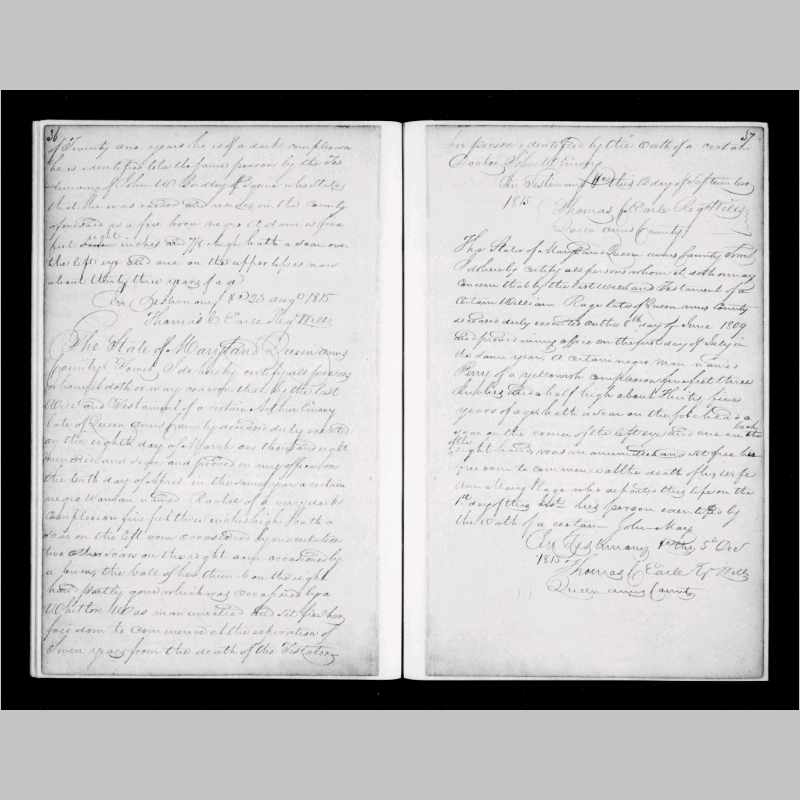 36
of Twenty one years he is of a dark complexion
he is identified to be the same person by the Tes
timony of John W Bordley Esquire who states
that he was and raised in the County
aforesaid as a free born negro at down is five
feet eight inches and ¾ high hath a scar over
the left eye and one on the upper lip is now
about thirty three years of age
In Testimony &c 23 Augt 1815
Thomas C Earle Regr Wills
The State of Maryland Queen anns
County Towit I do hereby certify all persons
whom it doth or may concern that by the last
Will and Testament of a certain Arthur Emory
late of Queen anns County deceased duly executed
on the eighth day of March one thousand eight
hundred and seven and proved in my office on
the tenth day of april in the same year a certain
negro woman named Rachel of a very dark
complexion five feet three inches high hath a
scar on the left arm occasioned by
two other scars on the right arm occasioned by
a burn, the ball of her thumb on the right
hand partly gone which was occasioned by a
Whitlow was manumitted and set free her
freedom to commence at the expiration of
seven years from the death of the Testator
37
her person identified by the Oath of a certain
Doctor John W Emory
In Testimony &c this 13 day of September
1815 Thomas C Earle Reg Wills
Queen anns County
The State of Maryland Queen anns County Towit
I do hereby certify all persons whom it doth or may
concern that by the last Will and Testament of a
certain William Rage late of Queen anns County
deceased duly executed on the 6th day of June 1809
and proved in my office on the first day of July in
the same year, A certain negro man named
Perry of a yellowish complexion five feet three
inches and a half high about thirty five
years of age hath a scar on the forehead a
scar on the corner of the left eye and one on the back
of the right hand was manumitted and set free his
freedom to commence at the death of his wife
Ann Mary Rage who departed this life on the
1st day of this Inst his person identified by
the Oath of a certain John May
In Testimony &c this 5th Oct
1815 Thomas C Earle Regr Wills
Queen anns County